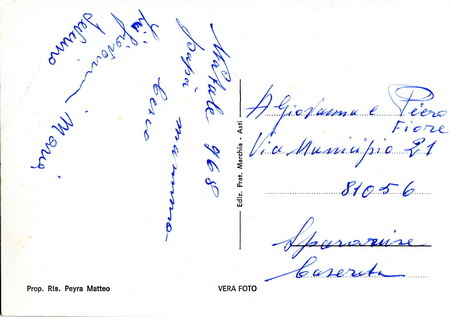 Natale 968
papà mamma
Ciccio
Zii
Giovanni
Mario
Ediz. Frat. Marchia - Asti
A Giovanna e Piero
Fiore
Via Municipio 21
81056
Sparanise
Caserta
Prop. Ris. Peyra Matteo
VERA FOTO